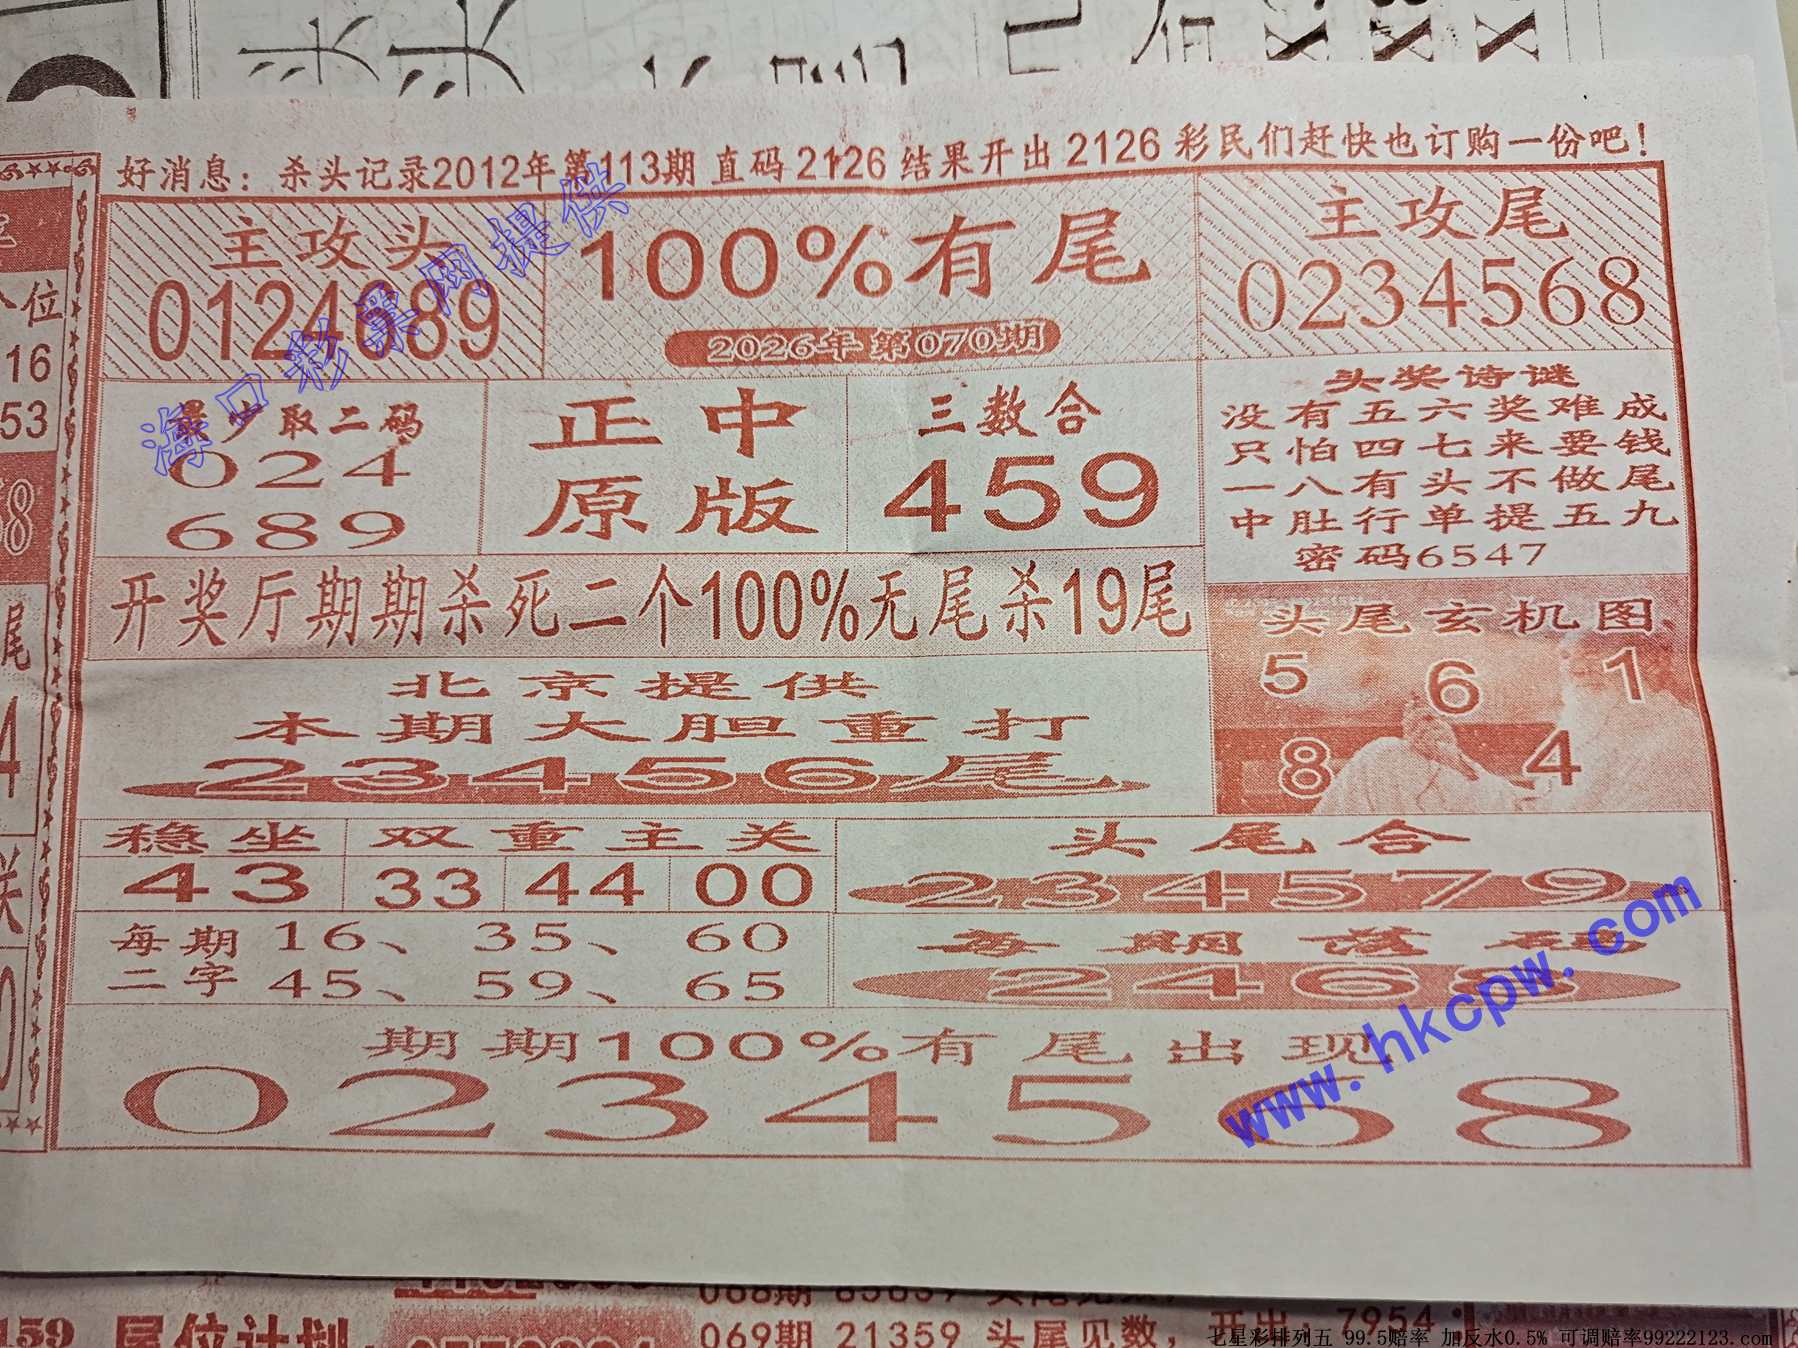 好消息：杀头记录2012年第113期 直码 2126 结果开出 2126 彩民们赶快也订购一份吧！
主攻头
0124689
100%有尾
2026年第070期
主攻尾
0234568
最少取二码
024
689
正中
原版
三数合
459
头奖诗谜
没有五六奖难成
只怕四七来要钱
一八有头不做尾
中肚行单提五九
密码6547
开奖厅期期杀死二个100%无尾杀19尾
北京提供
本期大胆重打
23456尾
头尾玄机图
5 6 1
8 4
稳坐 双重主关
43 33 44 00
头尾合
234579
每期 16、 35、 60
二字 45、 59、 65
每期
2468
期期100%有尾出现
0234568
海口彩票网提供
www.hkcpw.com
位
16
53
8
尾
4
159 尾位计划
069期 21359 头尾见数，开出：7954
七星彩排列五 99.5赔率 加反水0.5% 可调赔率99222123.com